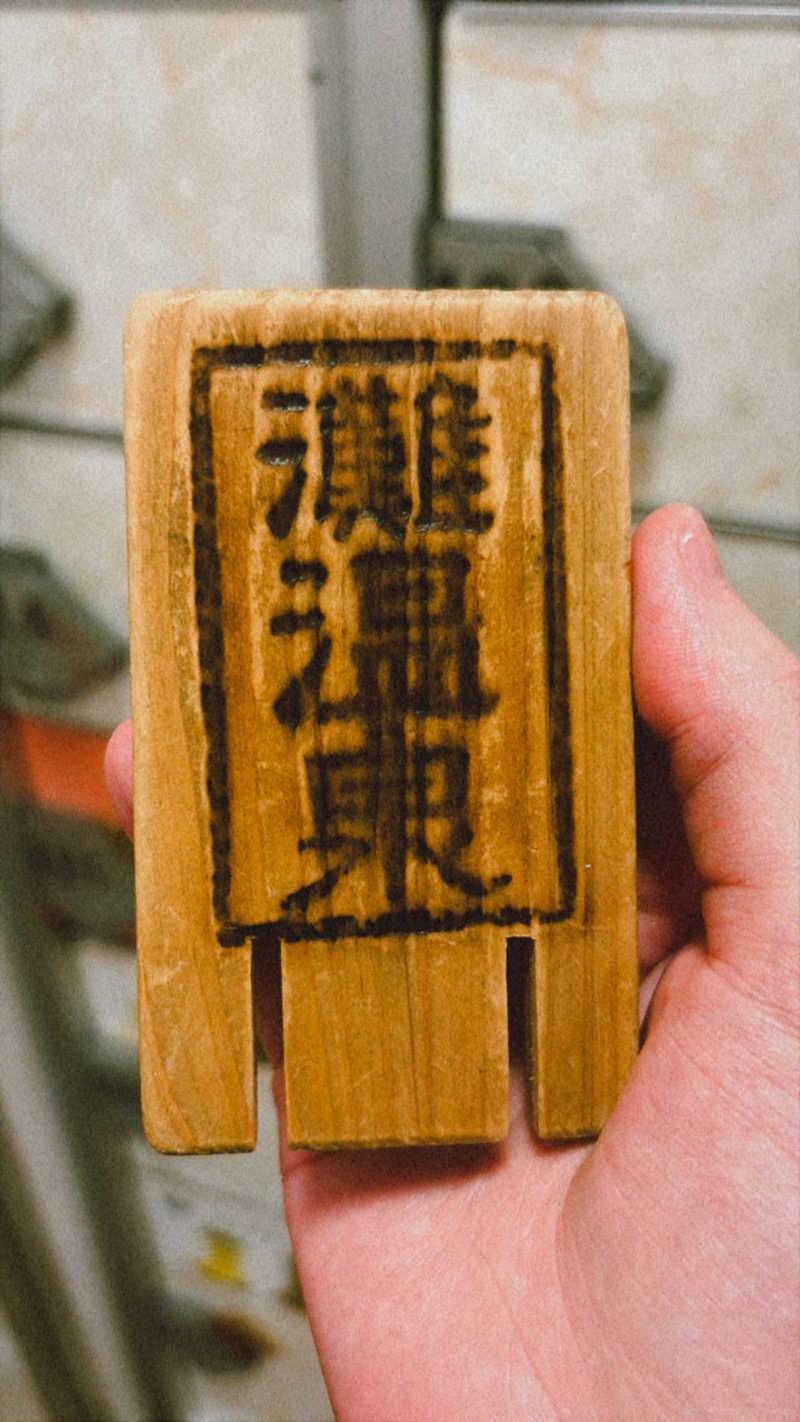 灘温泉